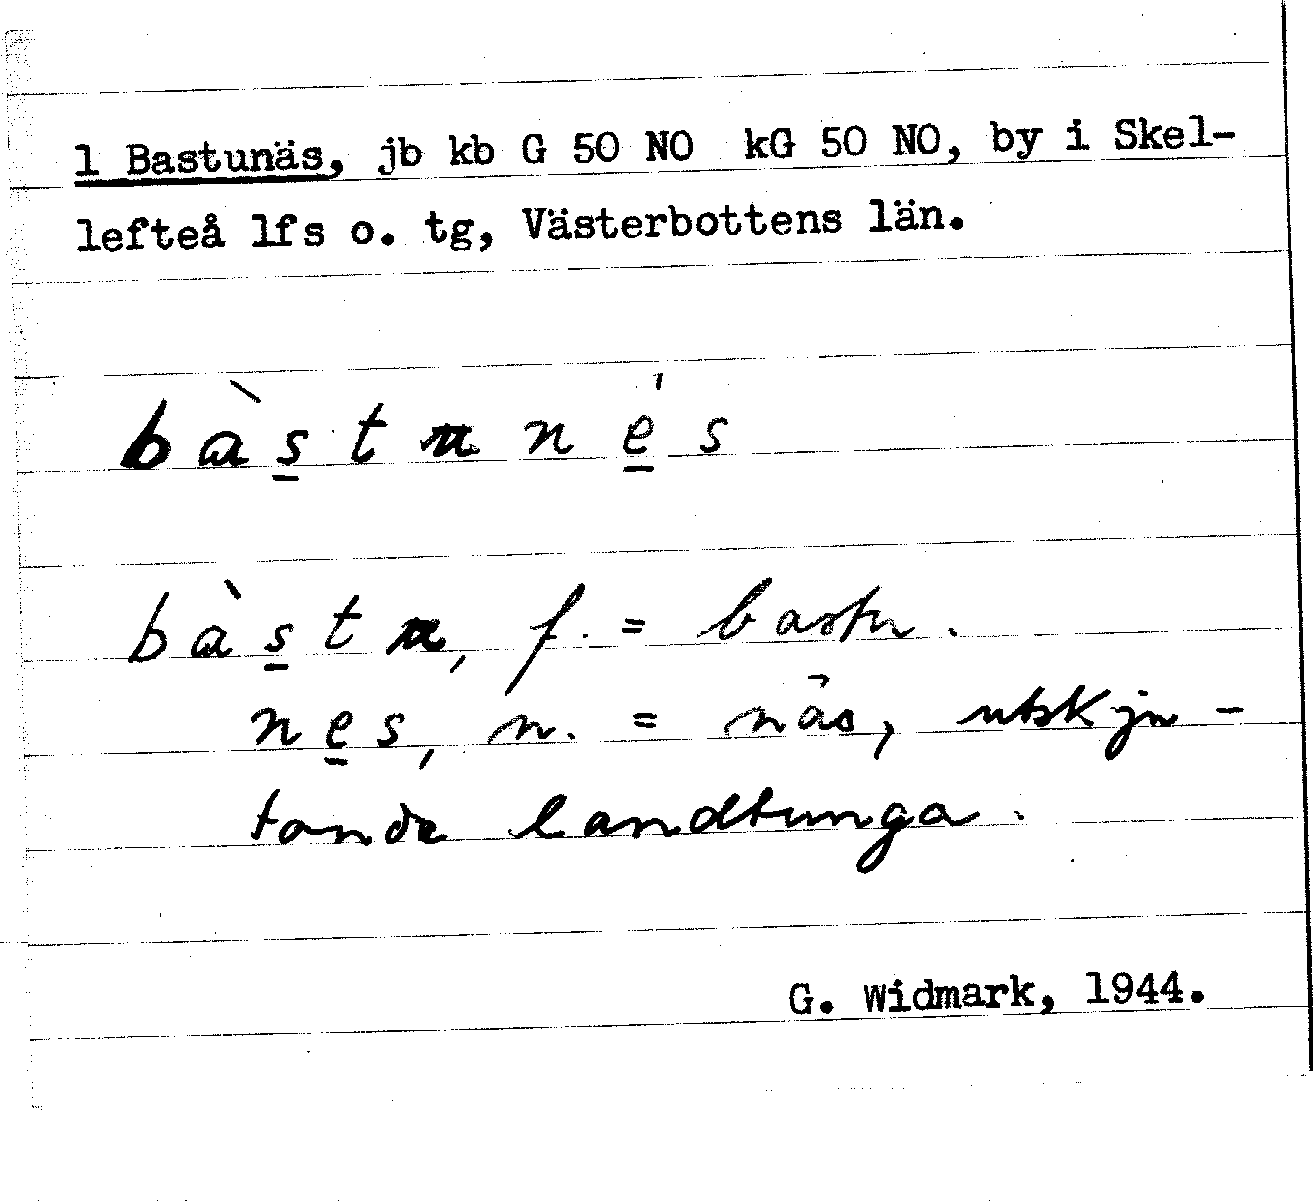 1 Bastunäs, jb kb G 50 NO kG 50 NO, by i Skel-
lefteå lfs o. tg, Västerbottens län.
bàs̲tune̲̍s
bàs̲tu, f. = bastu.
ne̲s, n. = näs, utskju-
tande landtunga.
G. Widmark, 1944.